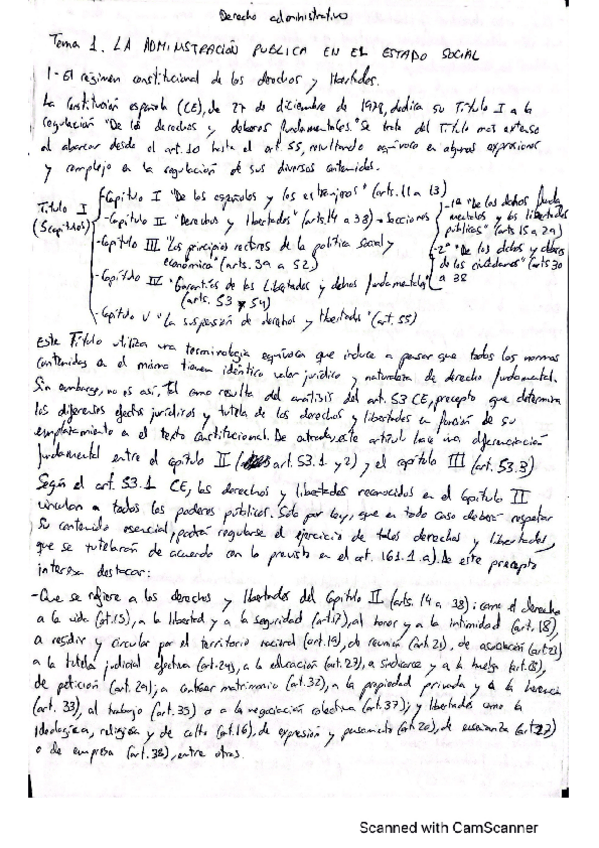 Derecho administrativo
Tema 1. LA ADMINISTRACIÓN PUBLICA EN EL ESTADO SOCIAL
1- El régimen constitucional de los derechos y libertades.
La Constitución española (CE), de 27 de diciembre de 1978, dedica su Título I a la
regulación "De los derechos y deberes fundamentales." Se trata del Título más extenso
al abarcar desde el art. 10 hasta el art. 55, resultando equívoco en algunas expresiones
y complejo en la regulación de sus diversos contenidos.
Título I
(5 capítulos)
-Capítulo I "De los españoles y los extranjeros" (arts. 11 a 13)
-Capítulo II "Derechos y libertades" (arts. 14 a 38) → Secciones
-1ª "De los dchos funda
mentales y las libertades
públicas" (arts 15 a 29)
-2ª "De los dchos y deberes
de los ciudadanos" (arts 30
a 38
-Capítulo III "Los principios rectores de la política social y
económica" (arts. 39 a 52)
-Capítulo IV "Garantías de las Libertades y dchos fundamentales"
(arts. 53 y 54)
-Capítulo V "La suspensión de derechos y libertades" (art. 55)
Este Título utiliza una terminología equívoca que induce a pensar que todas las normas
contenidas en el mismo tienen idéntico valor jurídico y naturaleza de derecho fundamental.
Sin embargo, no es así, tal como resulta del análisis del art. 53 CE, precepto que determina
los diferentes efectos jurídicos y tutela de los derechos y libertades en función de su
emplazamiento en el texto constitucional. De entrada, este artículo hace una diferenciación
fundamental entre el capítulo II (art. 53.1 y 2) y el capítulo III (art. 53.3)
Según el art. 53.1 CE, los derechos y libertades reconocidos en el Capítulo II
vinculan a todos los poderes públicos. Solo por ley, que en todo caso deberá respetar
su contenido esencial, podrá regularse el ejercicio de tales derechos y libertades,
que se tutelarán de acuerdo con lo previsto en el art. 161.1.a). De este precepto
interesa destacar:
-Que se refiere a los derechos y libertades del Capítulo II (arts. 14 a 38): como el derecho
a la vida (art. 15), a la libertad y a la seguridad (art. 17), al honor y a la intimidad (art. 18),
a residir y circular por el territorio nacional (art. 19), de reunión (art. 21), de asociación (art 22)
a la tutela judicial efectiva (art. 24), a la educación (art. 27), a sindicarse y a la huelga (art. 28),
de petición (art. 29); a contraer matrimonio (art. 32), a la propiedad privada y a la herencia
(art. 33), al trabajo (art. 35) o a la negociación colectiva (art. 37); y libertades como la
ideológica, religiosa y de culto (art. 16), de expresión y pensamiento (art. 20), de enseñanza (art 27)
o de empresa (art. 38), entre otras.
Scanned with CamScanner